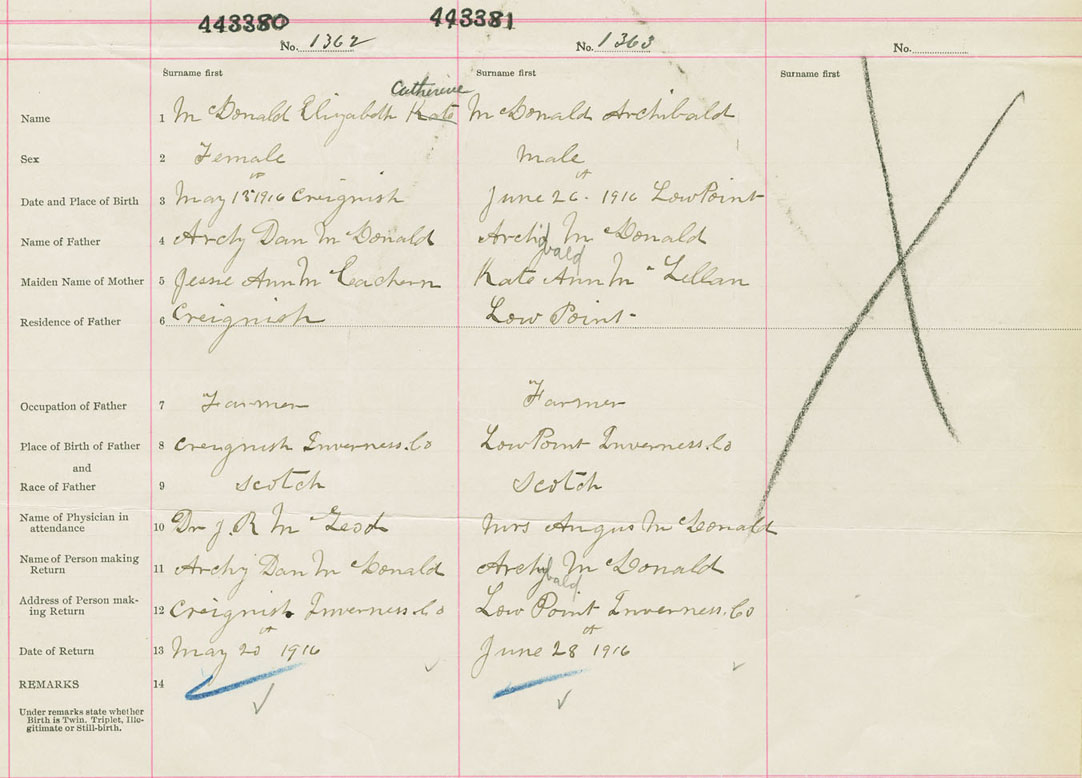 443380 443381
No. 1362 No. 1363 No.
Surname first Surname first Surname first
Catherine
Name 1 McDonald Elizabeth Kate McDonald Archibald
Sex 2 Female Male
Date and Place of Birth 3 May 18th 1916 Creignish June 26th 1916 Low Point
Name of Father 4 Archy Dan McDonald Archy McDonald
bald
Maiden Name of Mother 5 Jessie Ann McEachern Kate Ann McLellan
Residence of Father 6 Creignish Low Point
Occupation of Father 7 Farmer Farmer
Place of Birth of Father 8 Creignish Inverness. Co Low Point Inverness. Co
and
Race of Father 9 Scotch Scotch
Name of Physician in
attendance 10 Dr J. R McLeod Mrs Angus McDonald
Name of Person making
Return 11 Archy Dan McDonald Archy McDonald
bald
Address of Person mak-
ing Return 12 Creignish Inverness. Co Low Point Inverness. Co
Date of Return 13 May 20th 1916 June 28th 1916
REMARKS 14
Under remarks state whether
Birth is Twin, Triplet, Ille-
gitimate or Still-birth.